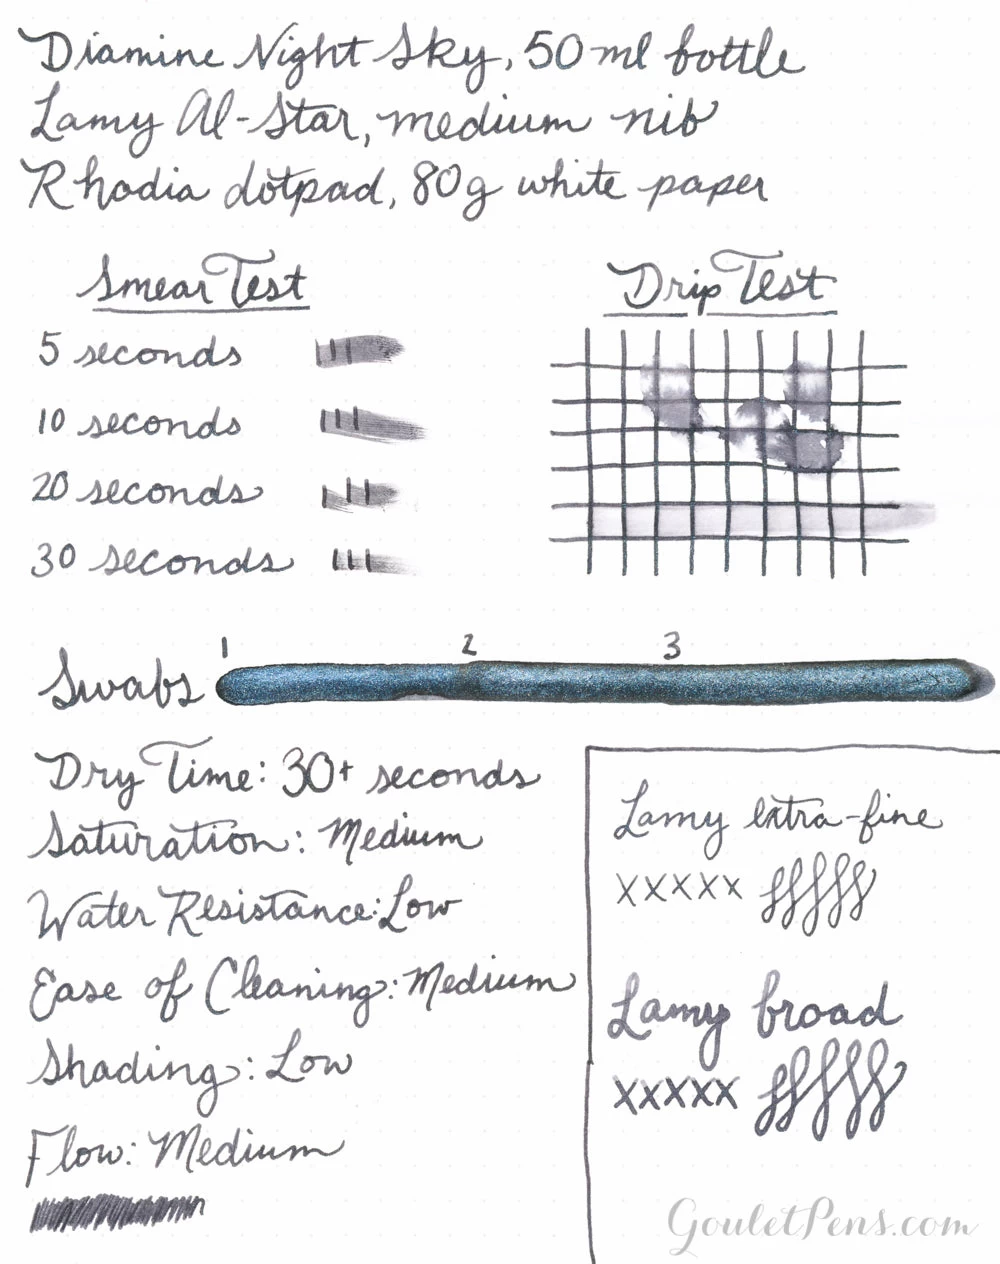 Diamine Night Sky, 50ml bottle
Lamy Al-Star, medium nib
Rhodia dotpad, 80g white paper
Smear Test
5 seconds
10 seconds
20 seconds
30 seconds
Drip Test
1 2 3
Swabs
Dry Time: 30+ seconds
Saturation: Medium
Water Resistance: Low
Ease of Cleaning: Medium
Shading: Low
Flow: Medium
Lamy extra-fine
xxxxx
Lamy broad
xxxxx
GouletPens.com